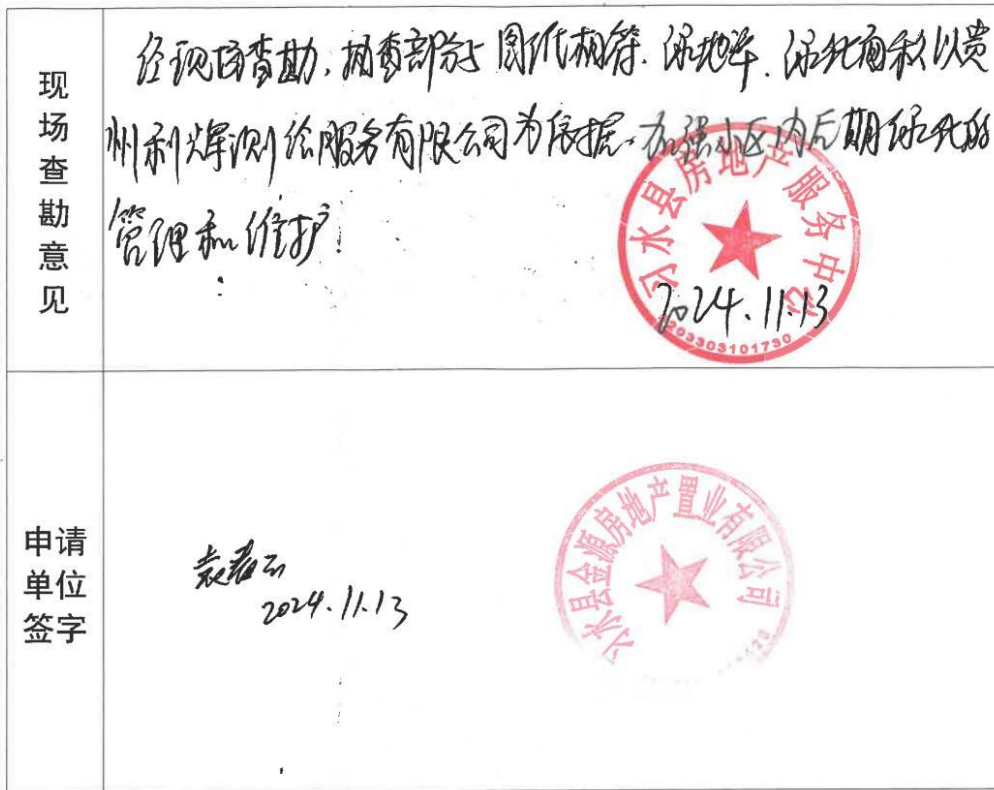 现场查勘意见
经现场查勘，抽查部分与图纸相符.绿地率.绿化面积以贵
州利辉测绘服务有限公司为依据.加强小区内后期绿化的
管理和维护!
习水县房地产服务中心
2024.11.13
5203303101730
申请
单位
签字
2024.11.13
习水县金源房地产置业有限公司